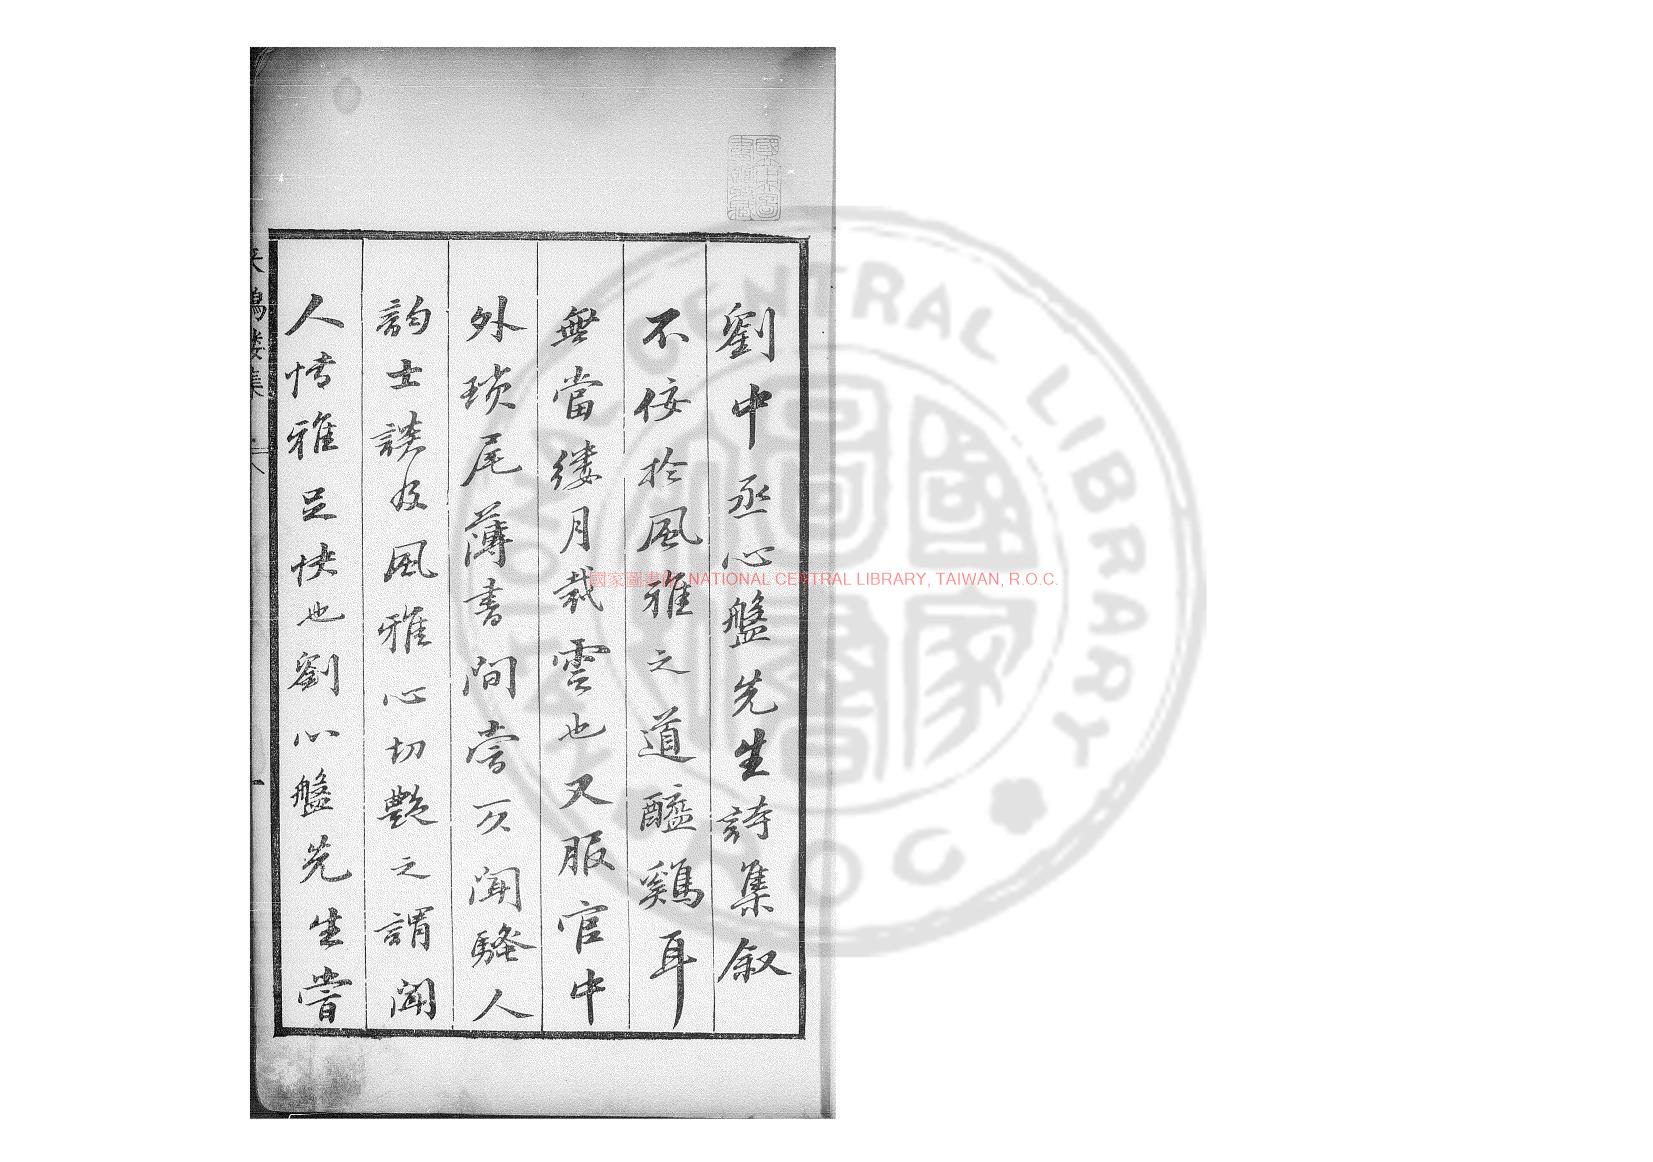 劉中丞心盤先生詩集叙
不佞於風雅之道醯鷄耳
無當縷月裁雲也又服官中
外瑣尾薄書間嘗一不聞騷人
韵士談及風雅心切艷之謂聞
人情雅足快也劉心盤先生嘗
鴻樓集
一
國家圖書館 NATIONAL CENTRAL LIBRARY, TAIWAN, R.O.C.
NATIONAL CENTRAL LIBRARY
R.O.C.
國家圖書